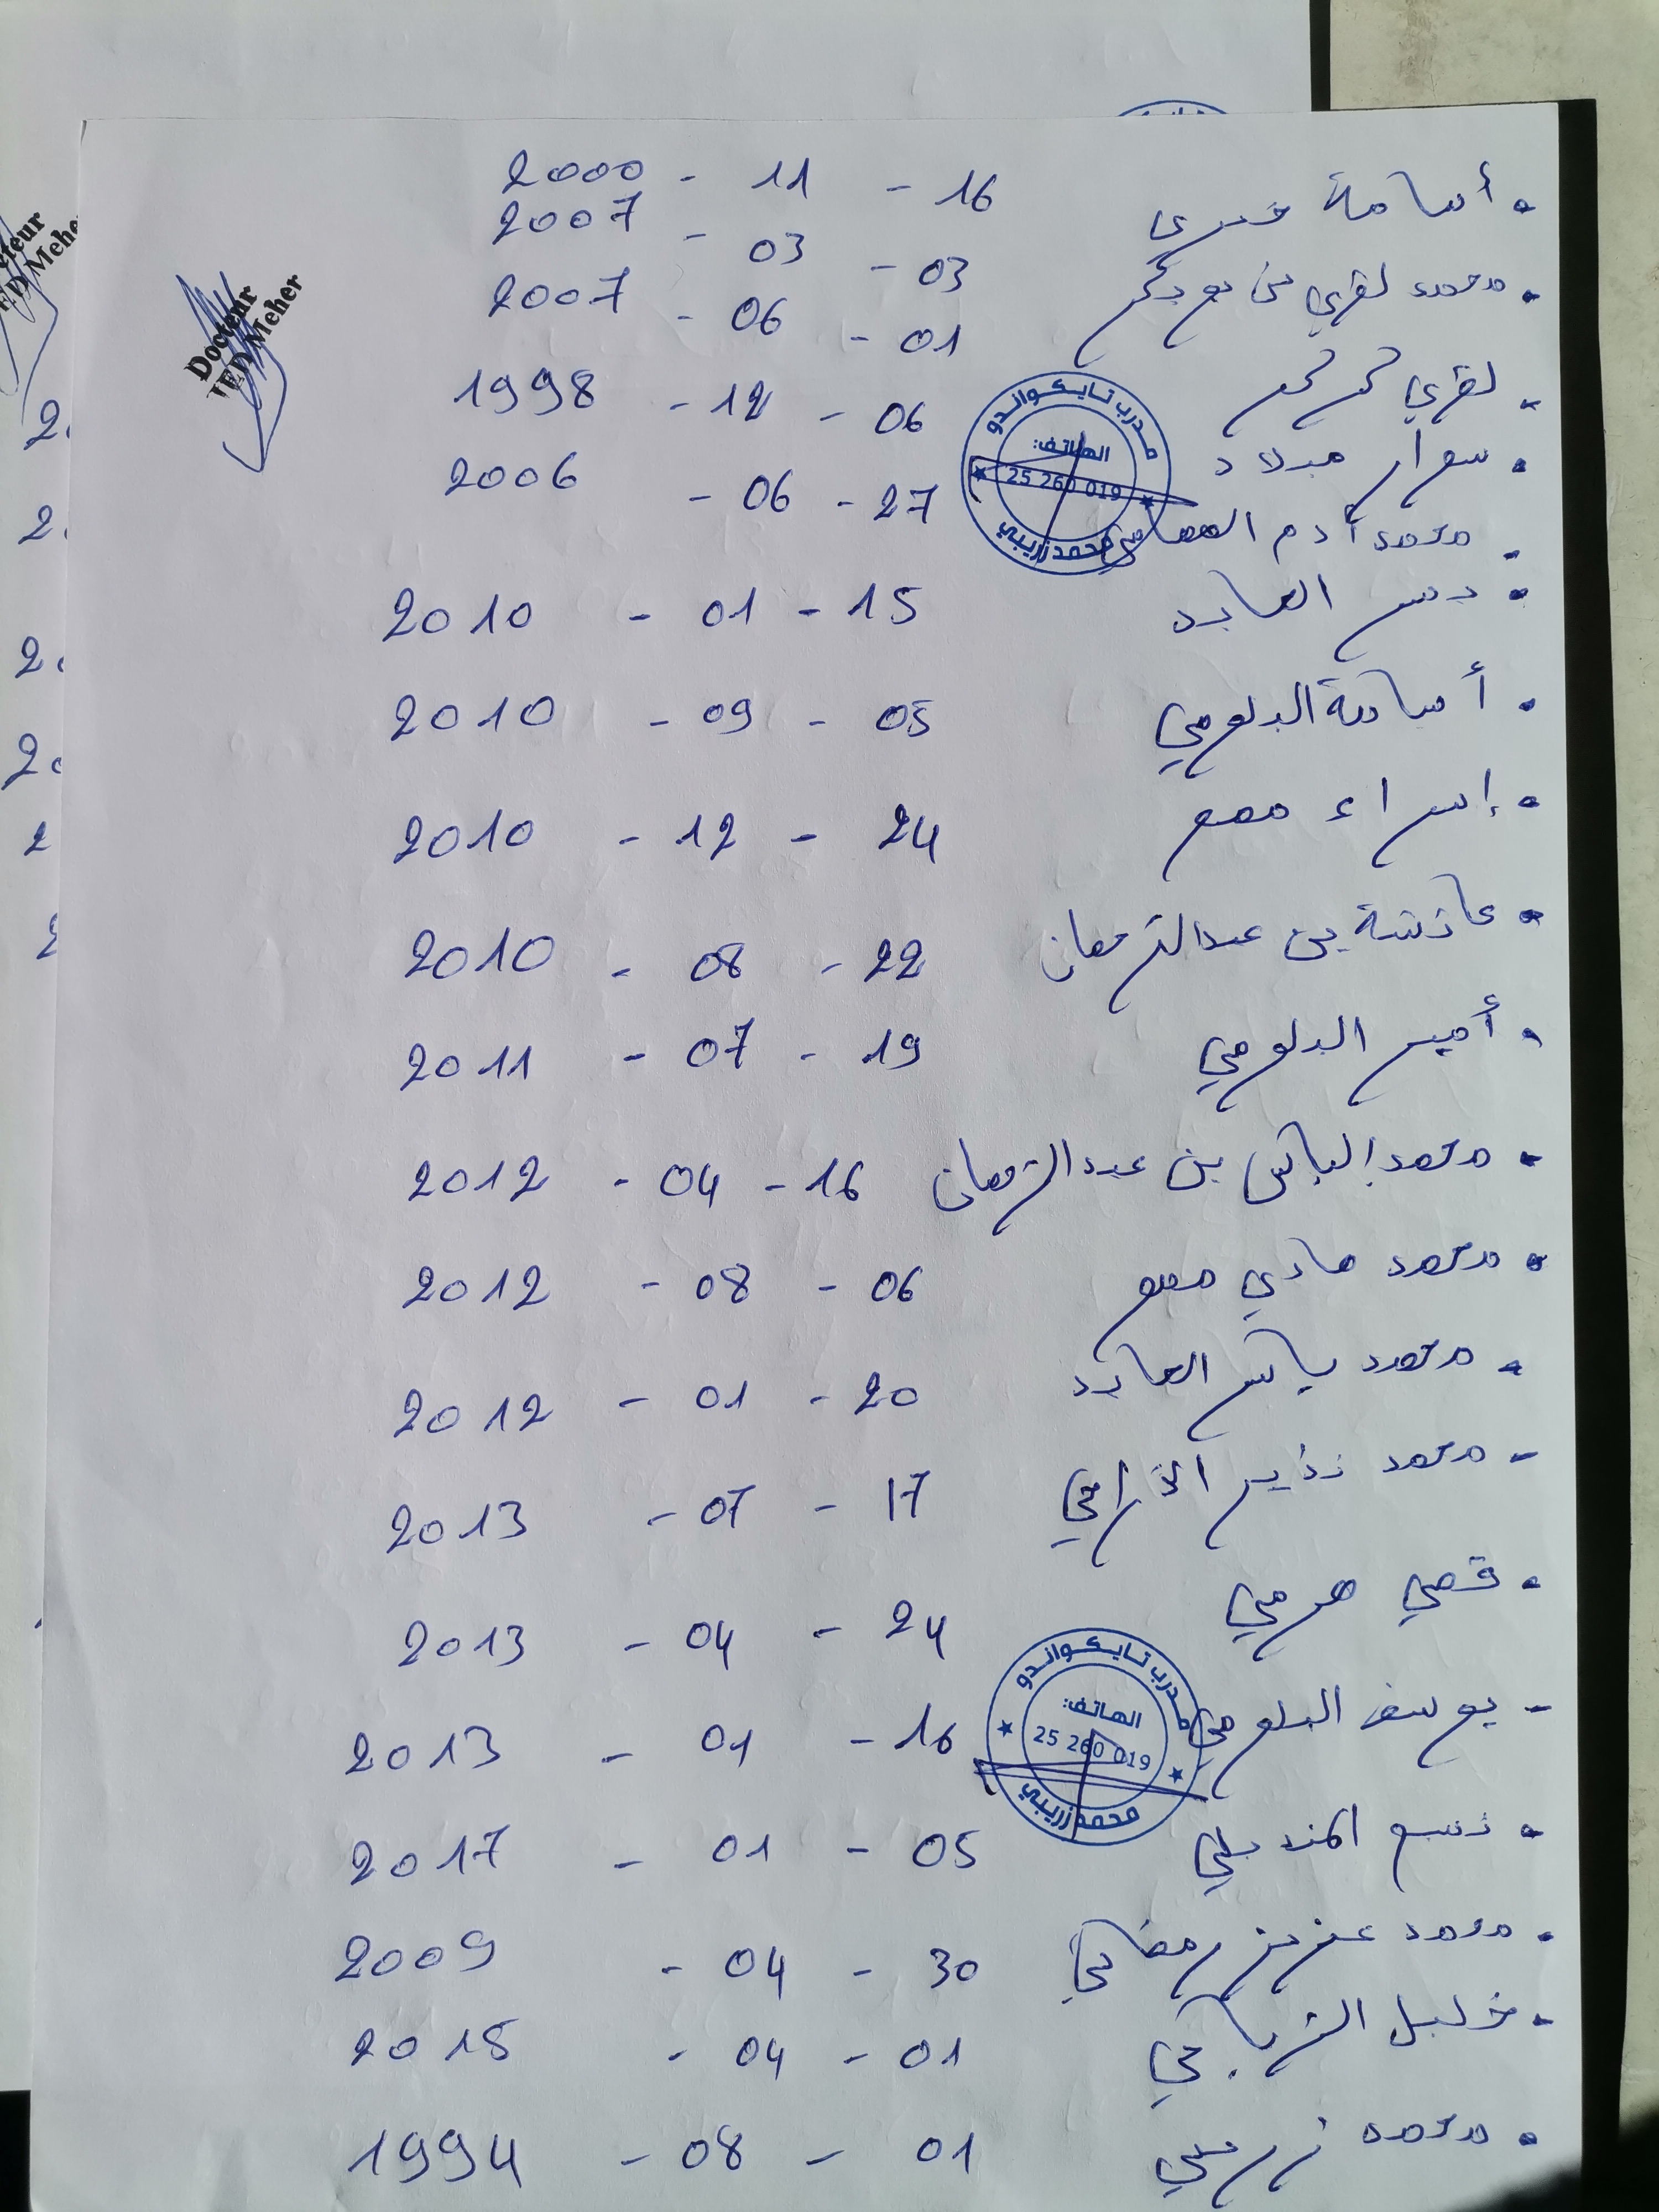 أسامة خيري 16 - 11 - 2000
محمد لغري بن بوبكر 03 - 03 - 2007
لغري 01 - 06 - 2007
سوار ميلاد 06 - 12 - 1998
محمد آدم العصامي 27 - 06 - 2006
العابد 15 - 01 - 2010
أسامة البلومي 05 - 09 - 2010
إسراء 24 - 12 - 2010
عائشة بن عبد الرحمان 22 - 08 - 2010
أمير البلومي 19 - 07 - 2011
محمد إلياس بن عبد الرحمان 16 - 04 - 2012
محمد هادي 06 - 08 - 2012
محمد ياسر العابد 20 - 01 - 2012
محمد نذير 17 - 07 - 2013
قصي هرمي 24 - 04 - 2013
يوسف البلومي 16 - 01 - 2013
05 - 01 - 2017
محمد عزيز رمضاني 30 - 04 - 2009
خليل 01 - 04 - 2015
محمد زريبي 01 - 08 - 1994
Docteur
Meher
مدرب تايكواندو
الهاتف:
25 260 019
محمد زريبي
مدرب تايكواندو
الهاتف:
25 260 019
محمد زريبي